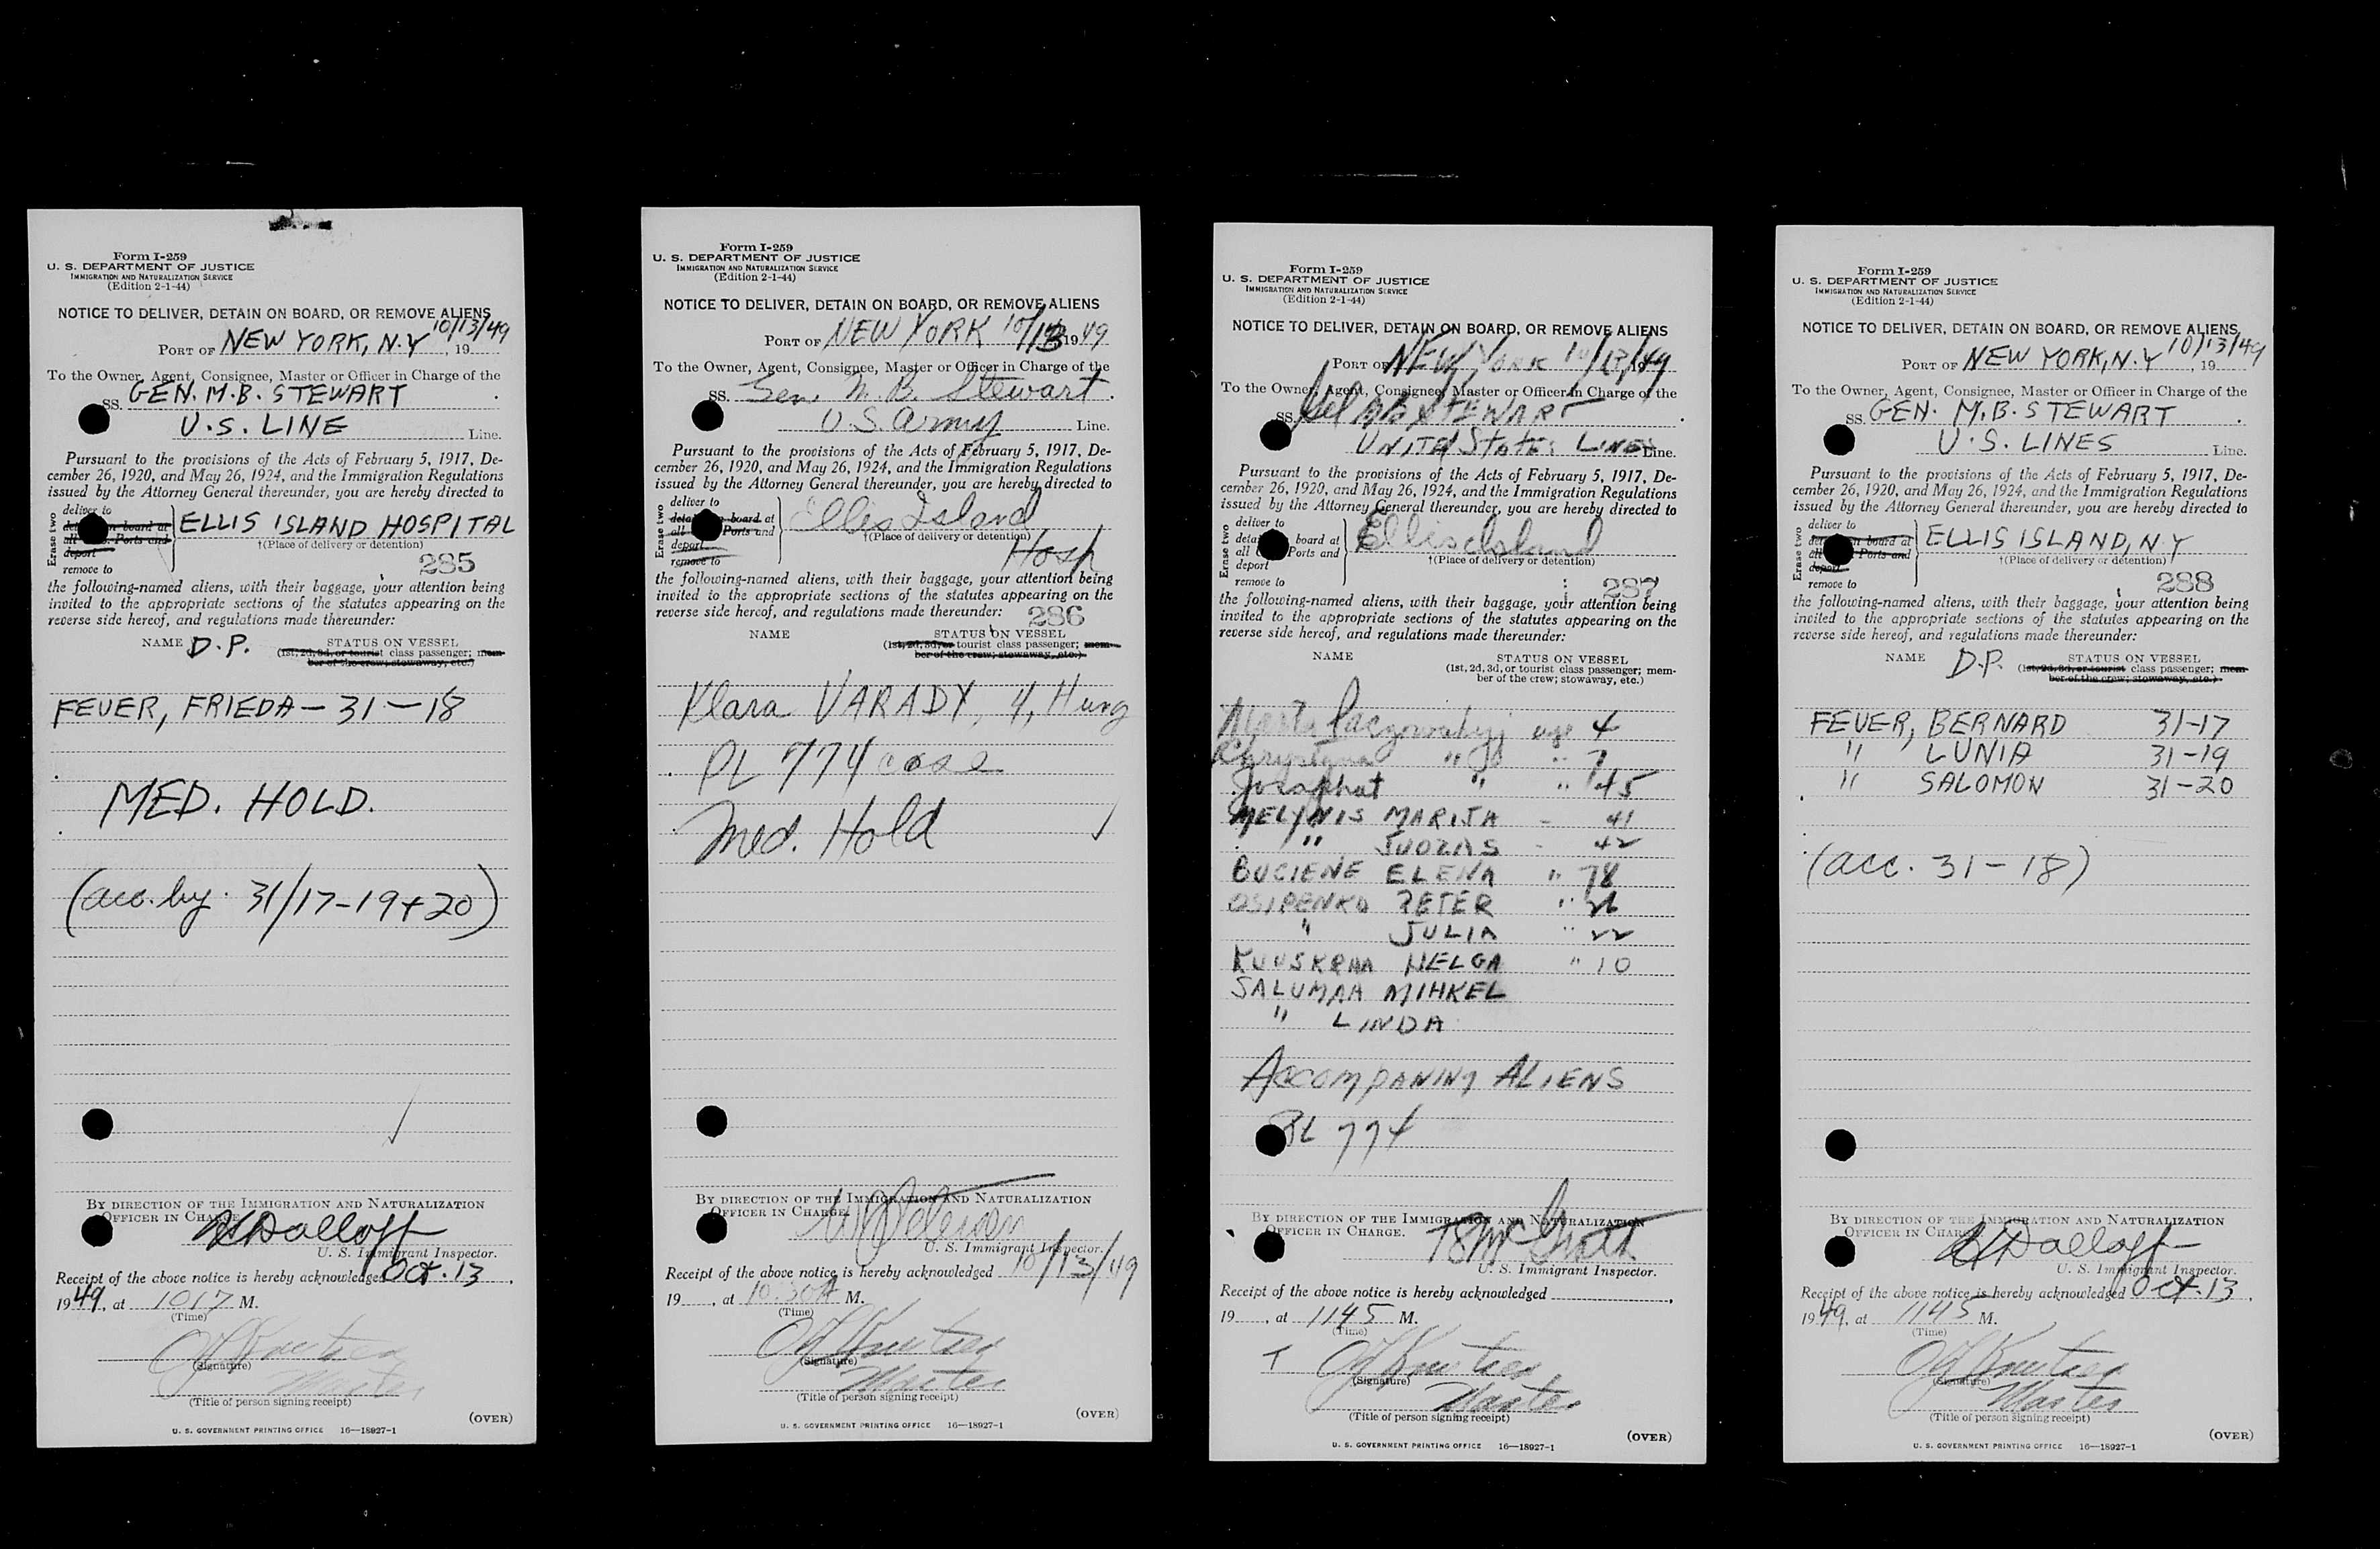 Form I-259
U. S. DEPARTMENT OF JUSTICE
IMMIGRATION AND NATURALIZATION SERVICE
(Edition 2-1-44)
NOTICE TO DELIVER, DETAIN ON BOARD, OR REMOVE ALIENS
PORT OF NEW YORK, N.Y 10/13/49, 19
To the Owner, Agent, Consignee, Master or Officer in Charge of the
SS. GEN. M.B. STEWART
U.S. LINE Line.
Pursuant to the provisions of the Acts of February 5, 1917, De-
cember 26, 1920, and May 26, 1924, and the Immigration Regulations
issued by the Attorney General thereunder, you are hereby directed to
Erase two
deliver to
board at
all Ports and
deport
remove to
ELLIS ISLAND HOSPITAL
†(Place of delivery or detention)
285
the following-named aliens, with their baggage, your attention being
invited to the appropriate sections of the statutes appearing on the
reverse side hereof, and regulations made thereunder:
NAME D.P. STATUS ON VESSEL
(1st, 2d, 3d, or tourist class passenger; mem-
ber of the crew; stowaway, etc.)
FEUER, FRIEDA - 31 - 18
MED. HOLD.
(acc. by. 31/17-19+20)
BY DIRECTION OF THE IMMIGRATION AND NATURALIZATION
OFFICER IN CHARGE
U. S. Immigrant Inspector.
Receipt of the above notice is hereby acknowledged Oct. 13,
1949, at 1017 M.
(Time)
(Signature)
Master
(Title of person signing receipt)
(OVER)
U. S. GOVERNMENT PRINTING OFFICE 16—18927-1
Form I-259
U. S. DEPARTMENT OF JUSTICE
IMMIGRATION AND NATURALIZATION SERVICE
(Edition 2-1-44)
NOTICE TO DELIVER, DETAIN ON BOARD, OR REMOVE ALIENS
PORT OF NEW YORK 10/13 1949
To the Owner, Agent, Consignee, Master or Officer in Charge of the
SS. Gen. M. B. Stewart.
U.S. Army Line.
Pursuant to the provisions of the Acts of February 5, 1917, De-
cember 26, 1920, and May 26, 1924, and the Immigration Regulations
issued by the Attorney General thereunder, you are hereby directed to
Erase two
deliver to
board at
all Ports and
deport
remove to
Ellis Island
†(Place of delivery or detention)
Hosp
the following-named aliens, with their baggage, your attention being
invited to the appropriate sections of the statutes appearing on the
reverse side hereof, and regulations made thereunder: 286
NAME STATUS ON VESSEL
(1st, 2d, 3d, or tourist class passenger; mem-
ber of the crew; stowaway, etc.)
Klara VARADY, 4, Hung
PL 774 case
Med. Hold
BY DIRECTION OF THE IMMIGRATION AND NATURALIZATION
OFFICER IN CHARGE.
U. S. Immigrant Inspector.
Receipt of the above notice is hereby acknowledged 10/13/49
19, at 10:30A M.
(Time)
(Signature)
Master
(Title of person signing receipt)
(OVER)
U. S. GOVERNMENT PRINTING OFFICE 16—18927-1
Form I-259
U. S. DEPARTMENT OF JUSTICE
IMMIGRATION AND NATURALIZATION SERVICE
(Edition 2-1-44)
NOTICE TO DELIVER, DETAIN ON BOARD, OR REMOVE ALIENS
PORT OF NEW YORK 10/13/49
To the Owner, Agent, Consignee, Master or Officer in Charge of the
SS. STEWART.
UNITED States LINES Line.
Pursuant to the provisions of the Acts of February 5, 1917, De-
cember 26, 1920, and May 26, 1924, and the Immigration Regulations
issued by the Attorney General thereunder, you are hereby directed to
Erase two
deliver to
board at
all Ports and
deport
remove to
Ellis Island
†(Place of delivery or detention)
287
the following-named aliens, with their baggage, your attention being
invited to the appropriate sections of the statutes appearing on the
reverse side hereof, and regulations made thereunder:
NAME STATUS ON VESSEL
(1st, 2d, 3d, or tourist class passenger; mem-
ber of the crew; stowaway, etc.)
age 4
" " 7
Josaphat " " 45
MELYNIS MARIJA - 41
" JUOZAS - 42
BUCIENE ELENA " 78
OSIPENKO PETER " 26
" JULIA " 22
KUUSKRAA HELGA " 10
SALUMAA MIHKEL
" LINDA
ACCOMPANING ALIENS
PL 774
BY DIRECTION OF THE IMMIGRATION AND NATURALIZATION
OFFICER IN CHARGE.
U. S. Immigrant Inspector.
Receipt of the above notice is hereby acknowledged ,
19, at 1145 M.
(Time)
(Signature)
Master
(Title of person signing receipt)
(OVER)
U. S. GOVERNMENT PRINTING OFFICE 16—18927-1
Form I-259
U. S. DEPARTMENT OF JUSTICE
IMMIGRATION AND NATURALIZATION SERVICE
(Edition 2-1-44)
NOTICE TO DELIVER, DETAIN ON BOARD, OR REMOVE ALIENS
PORT OF NEW YORK, N.Y 10/13/49, 19
To the Owner, Agent, Consignee, Master or Officer in Charge of the
SS. GEN. M.B. STEWART.
U.S. LINES Line.
Pursuant to the provisions of the Acts of February 5, 1917, De-
cember 26, 1920, and May 26, 1924, and the Immigration Regulations
issued by the Attorney General thereunder, you are hereby directed to
Erase two
deliver to
board at
all Ports and
deport
remove to
ELLIS ISLAND, N.Y
†(Place of delivery or detention)
288
the following-named aliens, with their baggage, your attention being
invited to the appropriate sections of the statutes appearing on the
reverse side hereof, and regulations made thereunder:
NAME D.P. STATUS ON VESSEL
(1st, 2d, 3d, or tourist class passenger; mem-
ber of the crew; stowaway, etc.)
FEUER, BERNARD 31-17
" LUNIA 31-19
" SALOMON 31-20
(acc. 31-18)
BY DIRECTION OF THE IMMIGRATION AND NATURALIZATION
OFFICER IN CHARGE
U. S. Immigrant Inspector.
Receipt of the above notice is hereby acknowledged Oct. 13,
1949, at 1145 M.
(Time)
(Signature)
Master
(Title of person signing receipt)
(OVER)
U. S. GOVERNMENT PRINTING OFFICE 16—18927-1